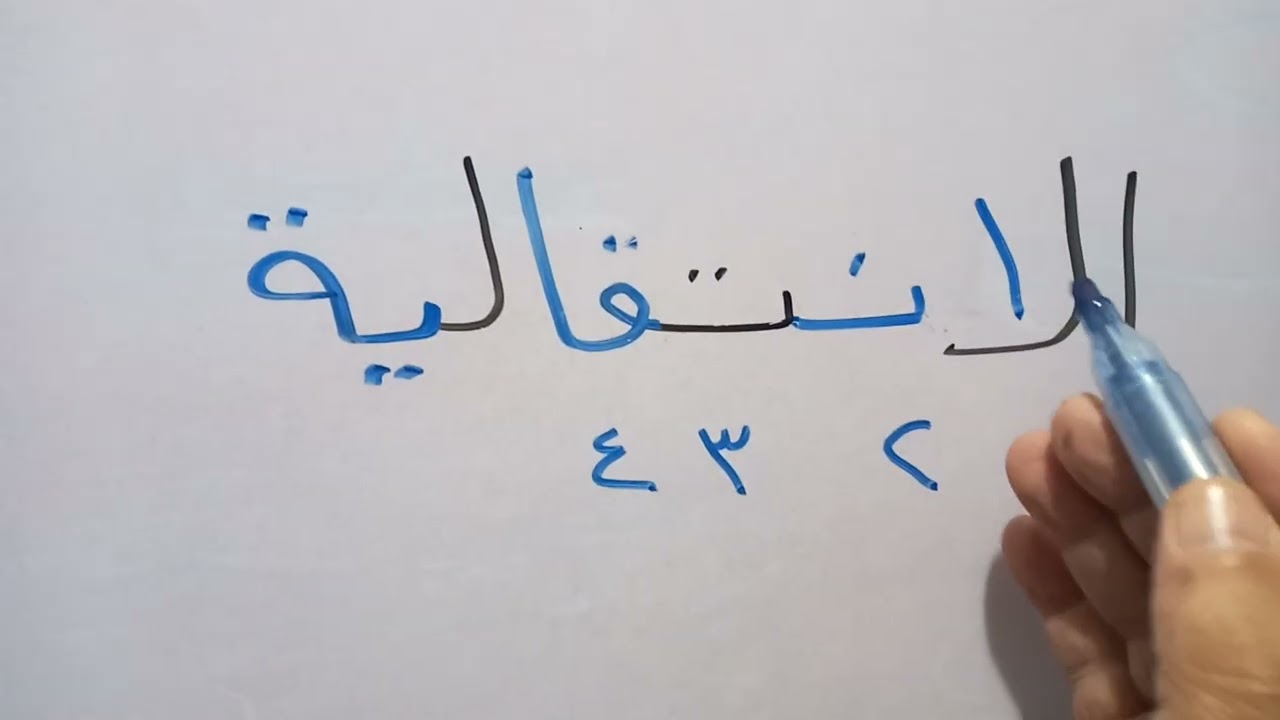 الانتقالية
٢ ٣ ٤